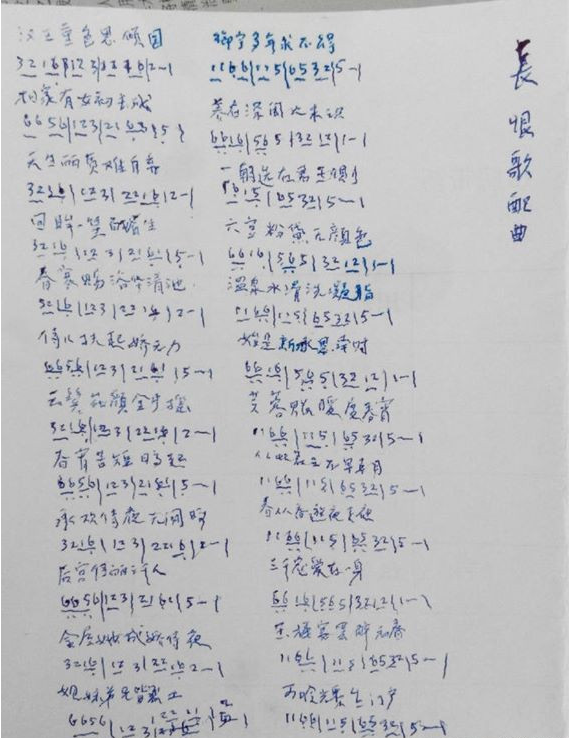 長恨歌配曲
汉王重色思倾国
杨家有女初长成
6656|123|2165|5-|
天生丽质难自弃
3216|123|2216|2-|
回眸一笑百媚生
3216|123|2161|5-|
春寒赐浴华清池
3216|123|2216|2-|
侍儿扶起娇无力
6656|123|2161|5-|
云鬓花颜金步摇
3216|123|2216|2-|
春宵苦短日高起
6656|123|2161|5-|
承欢侍夜无闲暇
3216|123|2216|2-|
后宫佳丽三千人
6656|123|2161|5-|
金屋妆成娇侍夜
3216|123|2216|2-|
姐妹弟兄皆列土
御宇多年求不得
1166|115|6532|5-|
养在深闺人未识
6616|565|3212|1-|
一朝选在君王侧
六宫粉黛无颜色
6616|565|3212|1-|
温泉水滑洗凝脂
1166|115|6532|5-|
始是新承恩泽时
6616|565|3212|1-|
芙蓉帐暖度春宵
1166|115|6532|5-|
从此君王不早朝
1166|115|6532|5-|
春从春游夜专夜
1166|115|6532|5-|
三千宠爱在一身
6616|565|3212|1-|
玉楼宴罢醉和春
1166|115|6532|5-|
可怜光采生门户
1166|115|6532|5-|